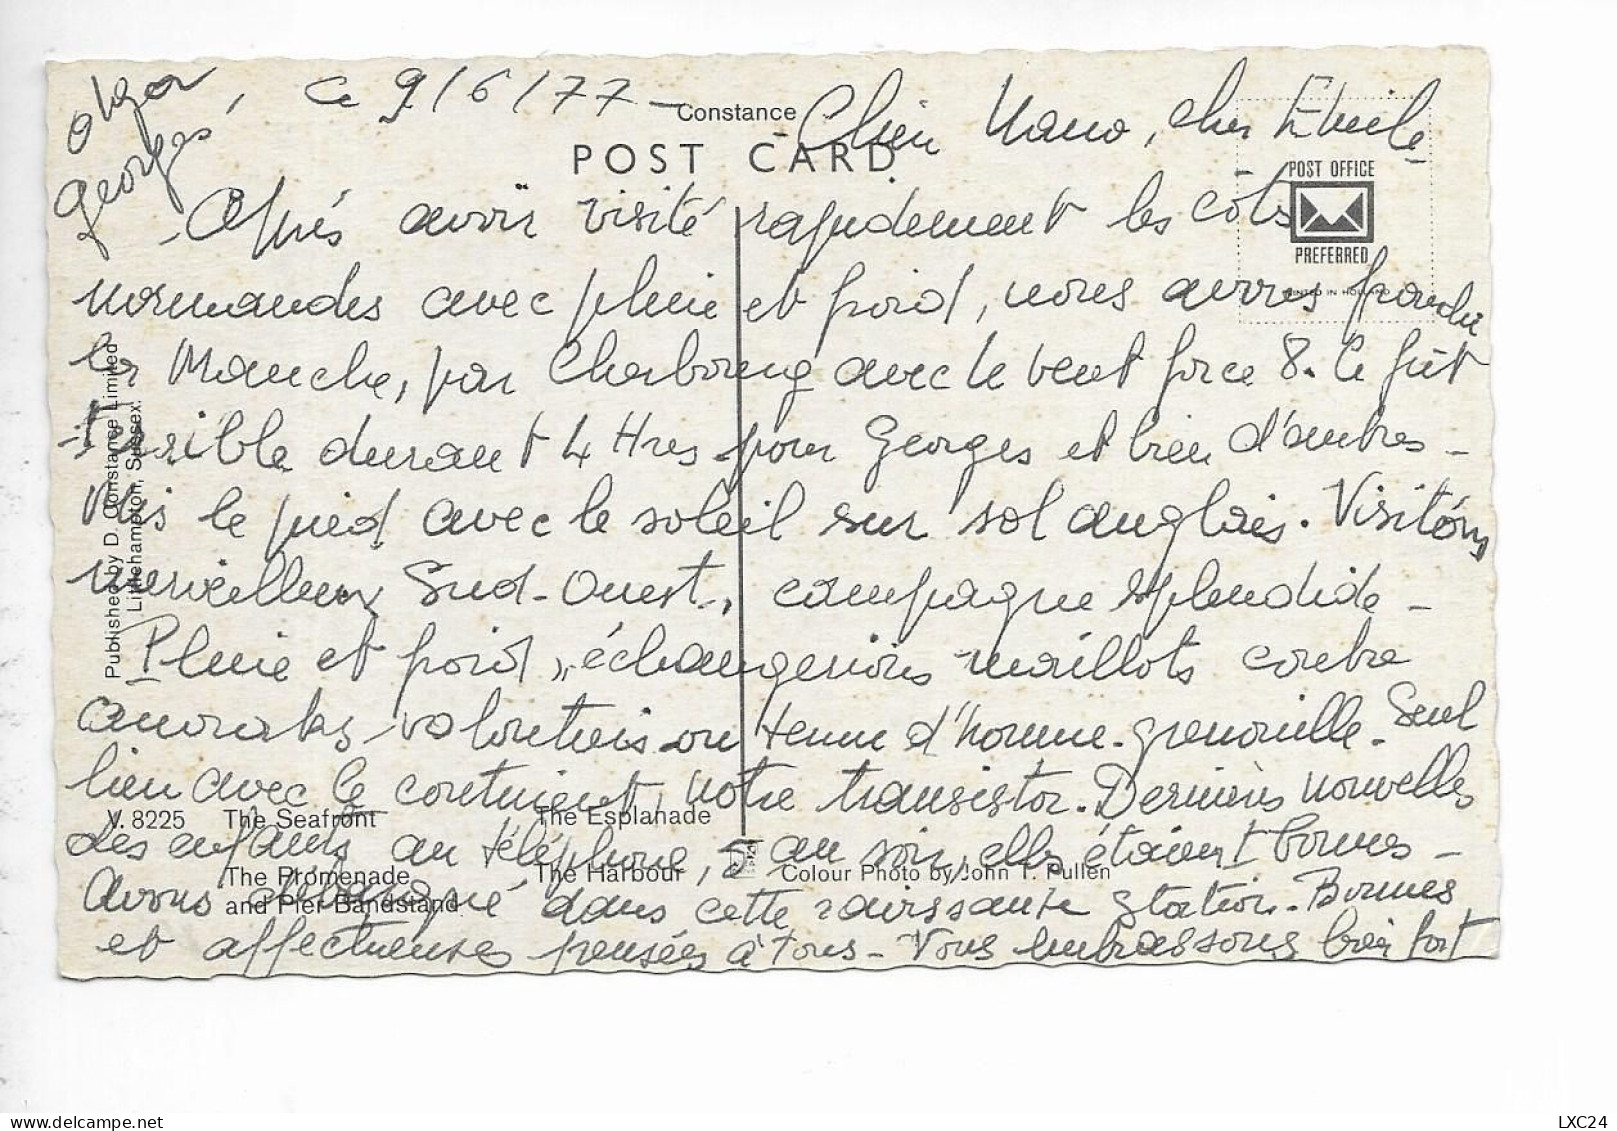 Olga
Georges
, Ce 9/6/77 - Chère Nano, cher Emile
Constance
POST CARD
POST OFFICE
PREFERRED
PRINTED IN HOLLAND
- Après avoir visité rapidement les côtes
normandes avec pluie et froid, nous avons franchi
la Manche, par Cherbourg avec le vent force 8. Ce fut
terrible durant 4 Hres pour Georges et bien d'autres -
Mis le pied avec le soleil sur sol anglais. Visitons
merveilleux Sud-Ouest, campagne splendide -
Pluie et froid, échangerions maillots contre
anoraks volontiers ou tenue d'homme-grenouille. Seul
lien avec le continent, notre transistor. Dernières nouvelles
des enfants au téléphone, au soir, elles étaient bonnes -
Avons dans cette ravissante station. Bonnes
et affectueuses pensées à tous - Vous embrassons bien fort
Published by D. Constance Limited
Littlehampton, Sussex.
V. 8225 The Seafront The Esplanade
The Promenade The Harbour
and Pier Bandstand
Colour Photo by John T. Pullen
LXC24